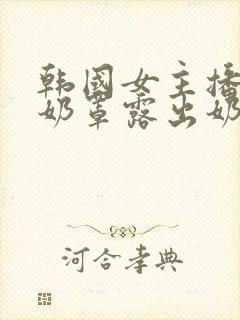 韩国女主播
奶罩露出奶
河合孝典